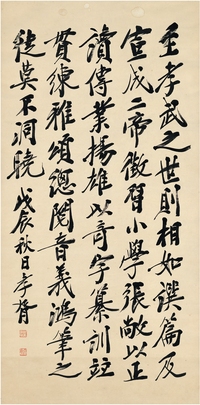 至孝武之世則相如譔篇及
宣成二帝徵習小學張敞以正
讀傳業揚雄以奇字纂訓並
貫練雅頌總閱音義鴻筆之
徒莫不洞曉 戊辰秋日孝胥